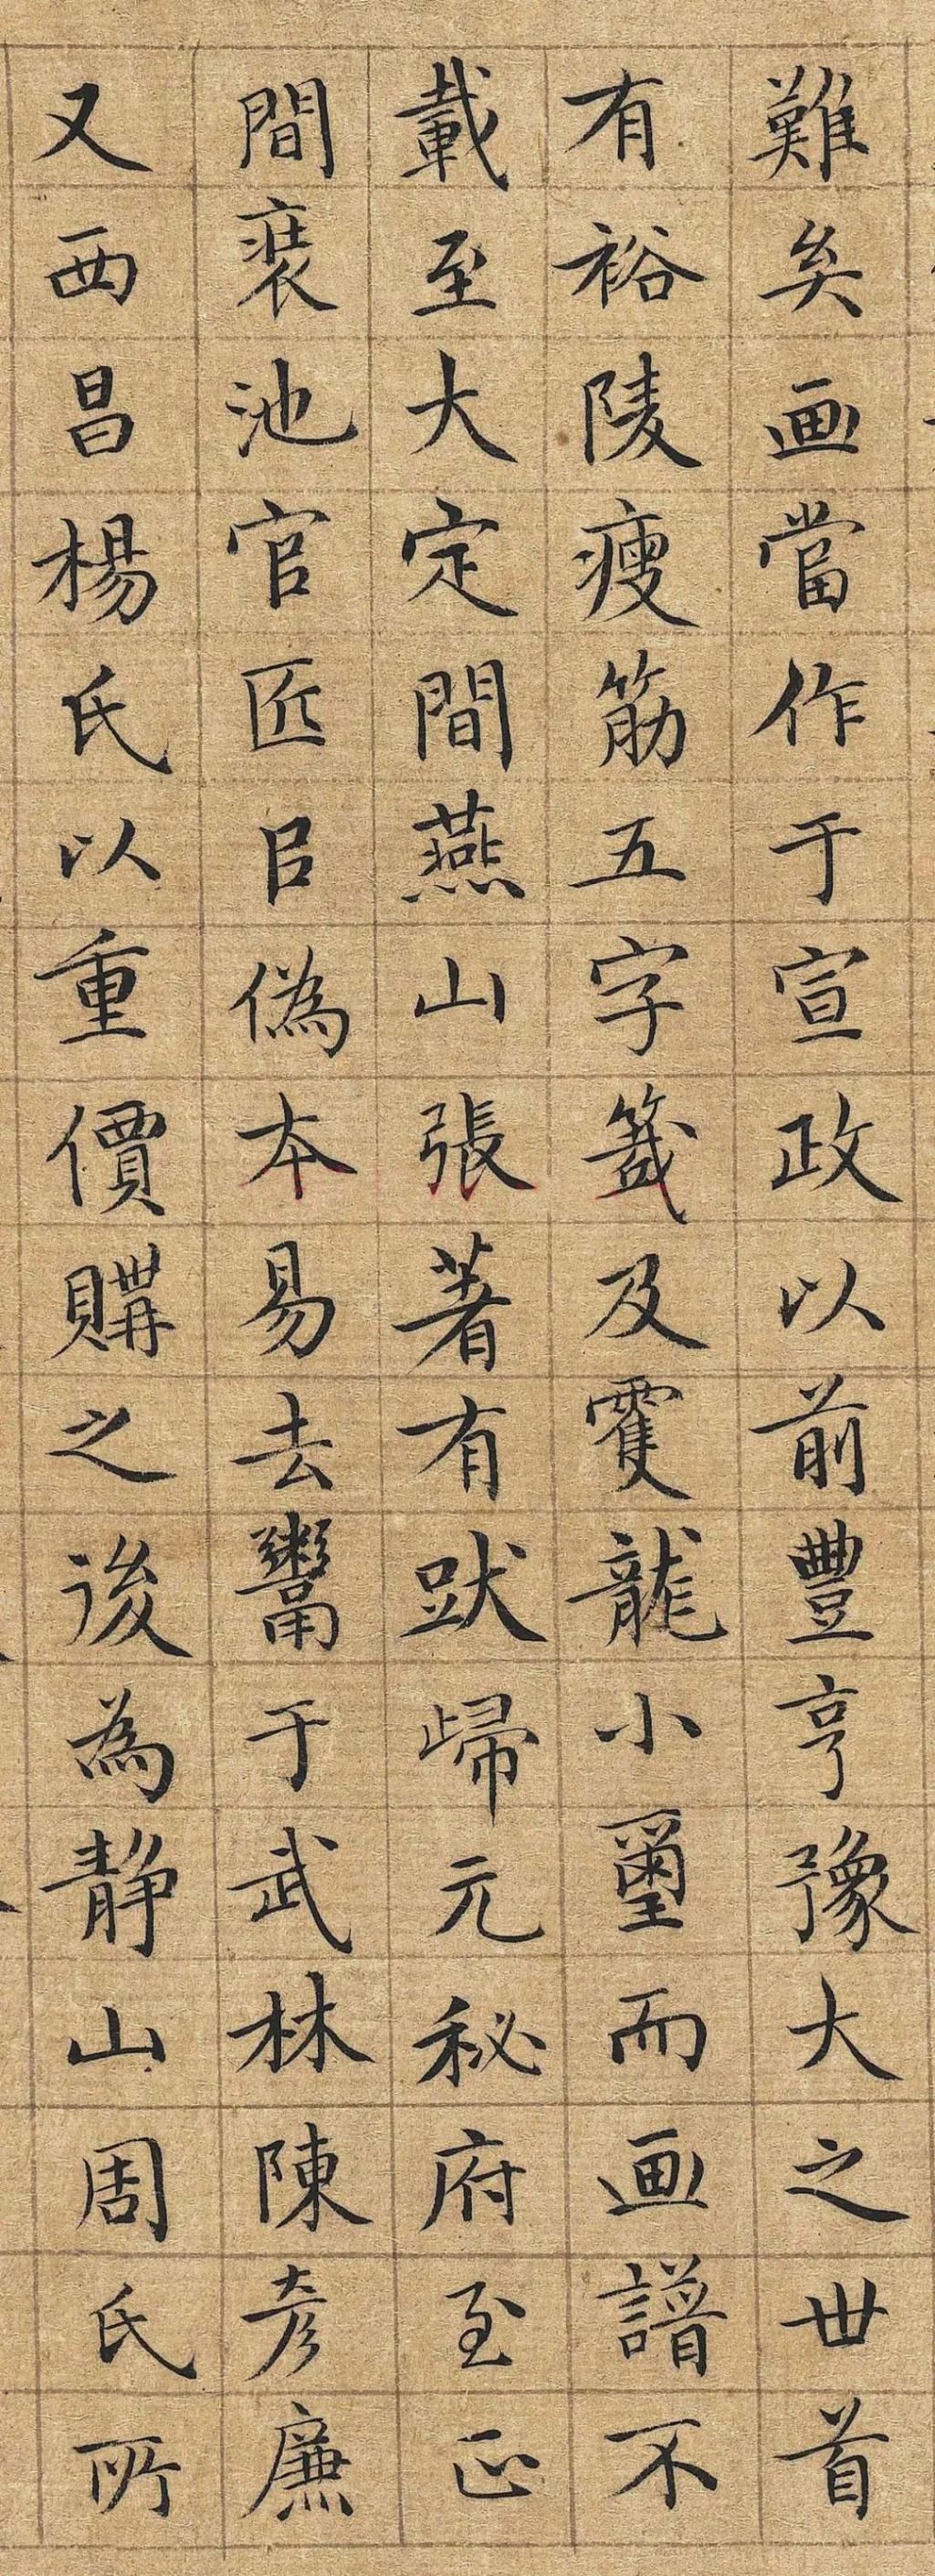 難矣画當作于宣政以前豐亨豫大之世首
有裕陵瘦筋五字籤及雙龍小璽而画譜不
載至大定間燕山張著有跋歸元秘府至正
間裝池官匠以偽本易去鬻于武林陳彦廉
又西昌楊氏以重價購之後為静山周氏所